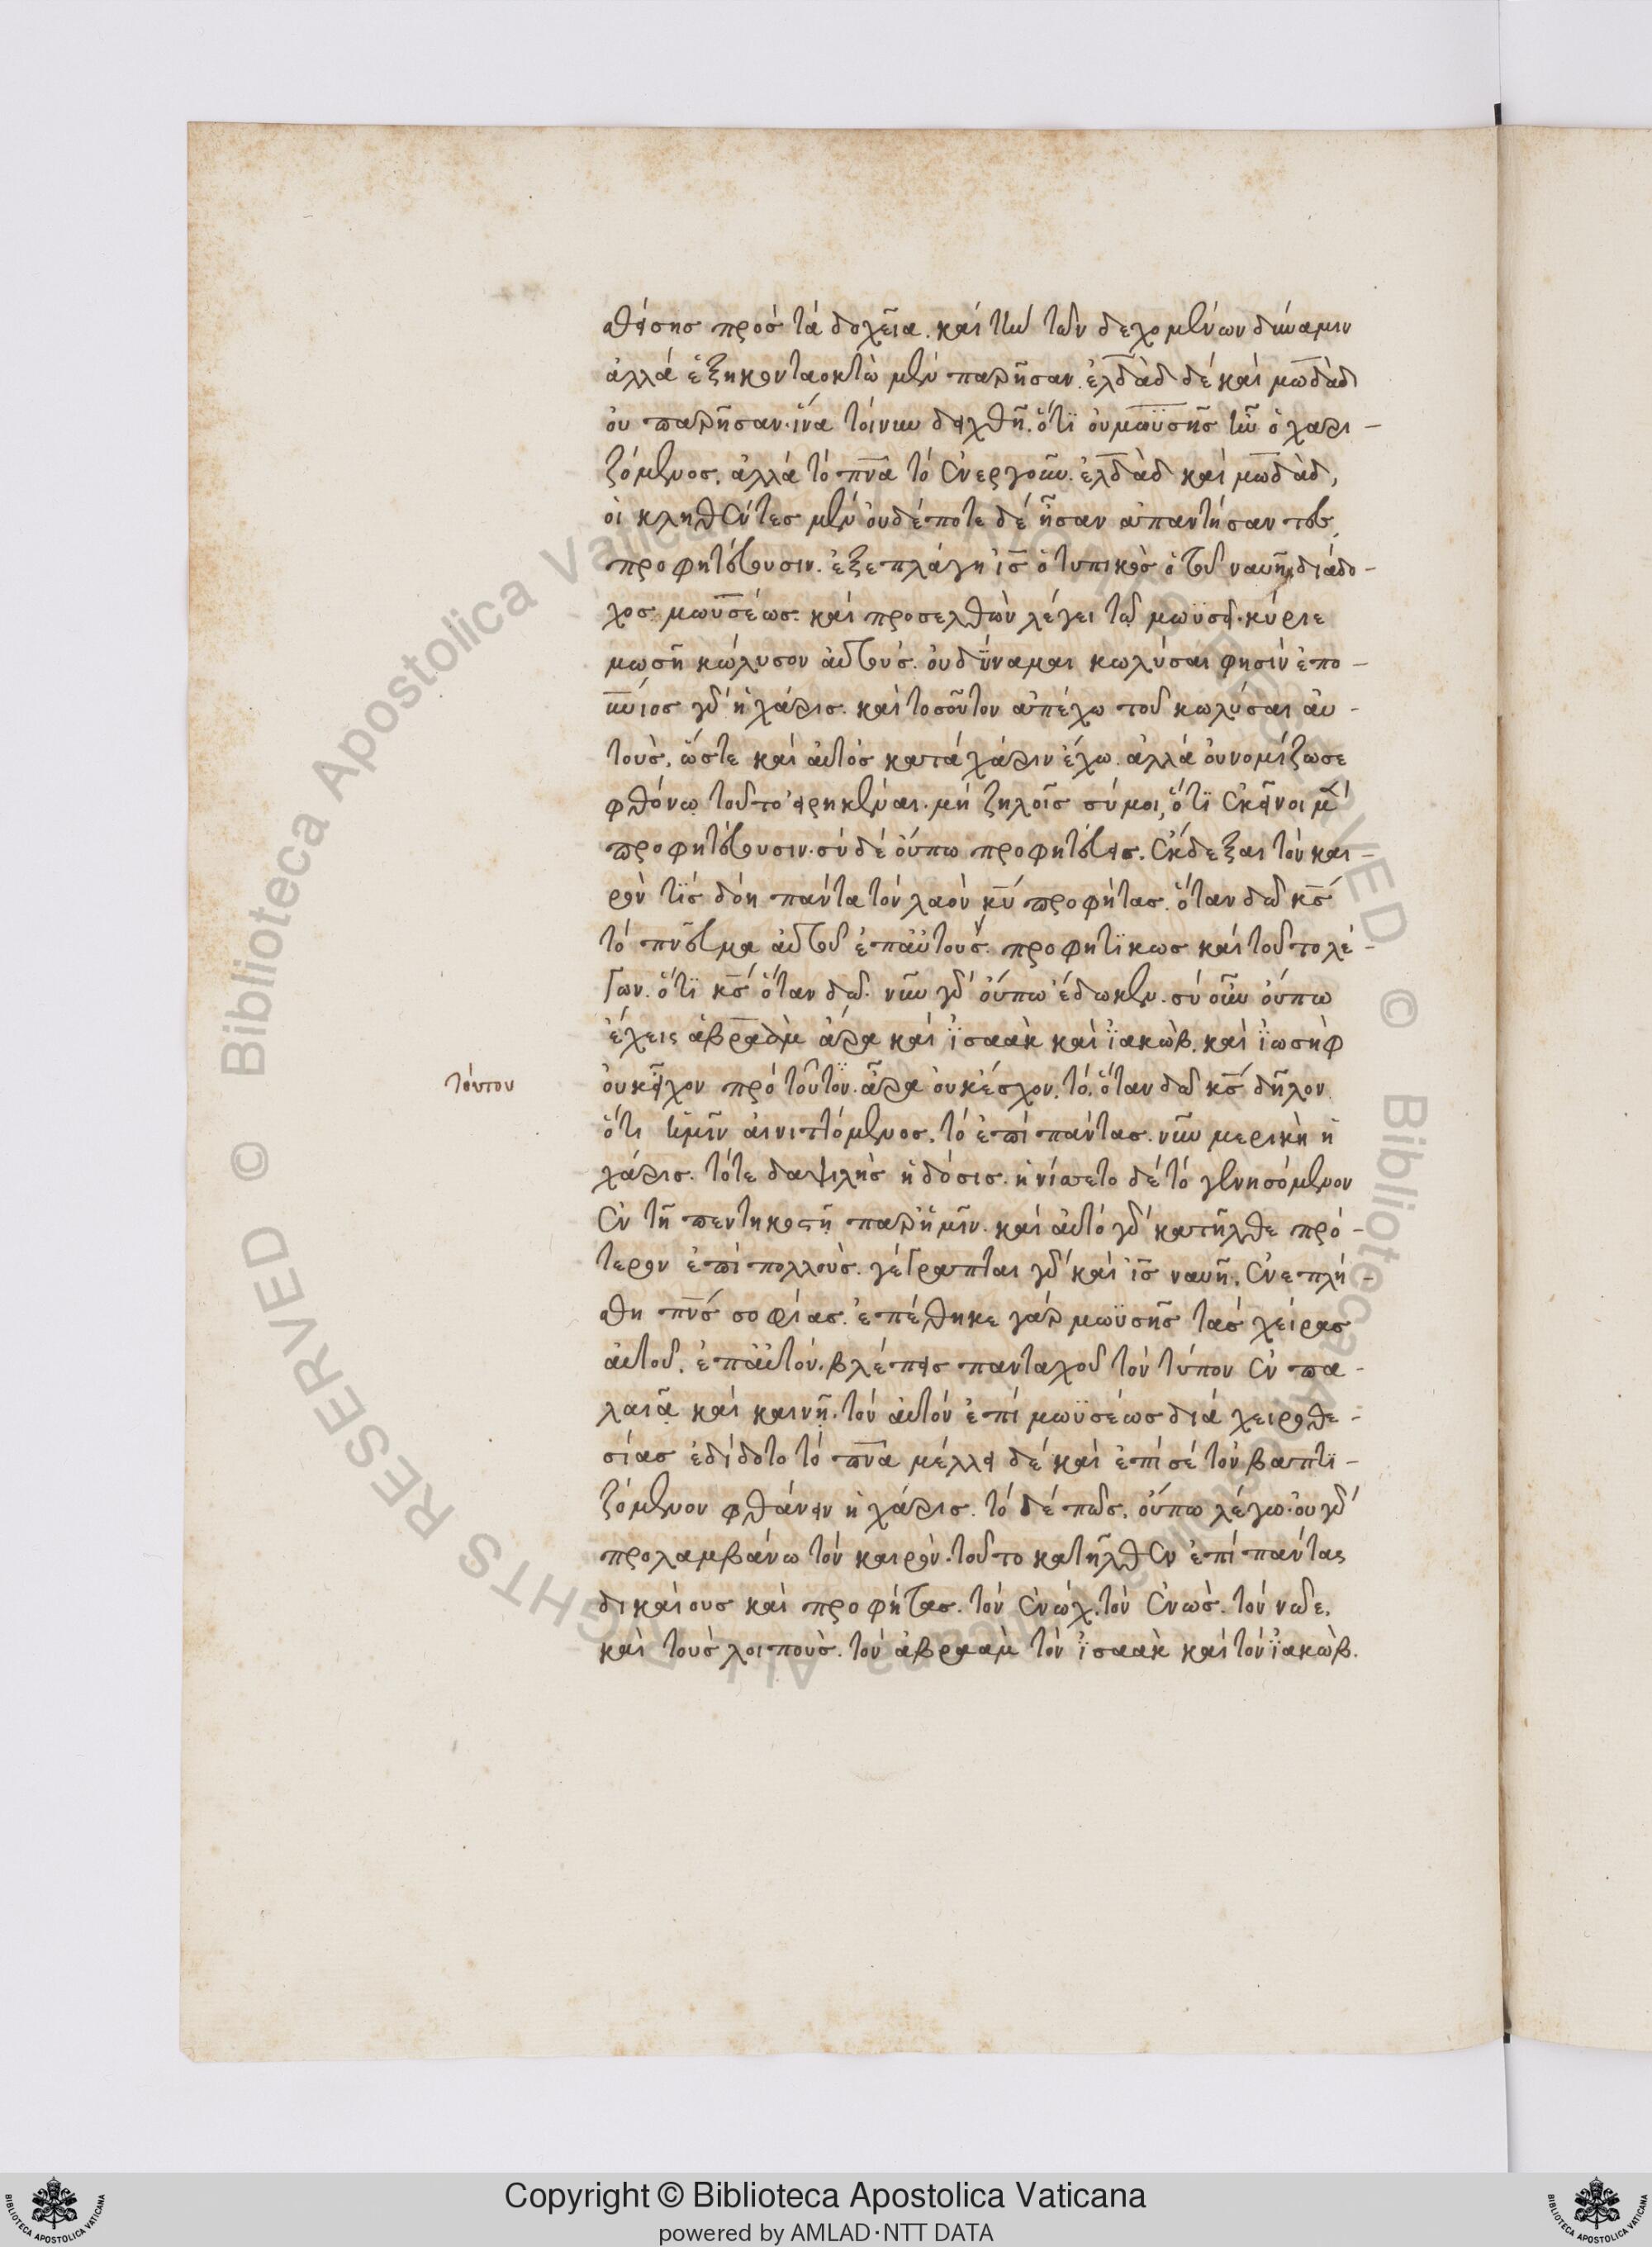 θείσης πρὸς τὰ δοχεῖα. καὶ τὴν τῶν δεχομένων δύναμιν
ἀλλὰ ἑξηκονταοκτὼ μὲν παρῆσαν. ἐλδὰδ δὲ καὶ μωδὰδ
οὐ παρῆσαν. ἵνα τοίνυν δειχθῆ. ὅτι οὐ μωϋσῆς ἦν ὁ χαρι-
ζόμενος. ἀλλὰ τὸ πνα τὸ ἐνεργοῦν. ἐλδὰδ καὶ μωδὰδ,
οἱ κληθέντες μὲν οὐδέποτε δὲ ἦσαν ἀπαντήσαντες
προφητεύουσιν. ἐξεπλάγη ις ὁ τυπικὸς ὁ τοῦ ναυῆ διάδο-
χος μωϋσέως. καὶ προσελθὼν λέγει τῶ μωϋσεῖ. κύριε
μωσῆ κώλυσον αὐτούς. οὐ δύναμαι κωλύσαι φησίν ἐπο-
υνιος γὰρ ἡ χάρις. καὶ τοσοῦτον ἀπέχω τοῦ κωλύσαι αὐ-
τούς. ὥστε καὶ αὐτὸς κατὰ χάριν ἔχω. ἀλλὰ οὐ νομίζω σε
φθόνω τοῦτο εἰρηκέναι. μὴ ζηλοῖς σύ μοι, ὅτι ἐκεῖνοι μὲν
προφητεύουσιν. σὺ δὲ οὔπω προφητεύεις. ἔκδεξαι τὸν και-
ρὸν τίς δόη πάντα τὸν λαὸν κυ προφήτας. ὅταν δῶ κς
τὸ πνεῦμα αὐτοῦ ἐπ' αὐτούς. προφητικῶς καὶ τοῦτο λέ-
γων. ὅτι κς ὅταν δῶ. νῦν γὰρ οὔπω ἔδωκεν. σὺ οὖν οὔπω
ἔχεις ἀβραὰμ ἄρα καὶ ἰσαὰκ καὶ ἰακὼβ. καὶ ἰωσὴφ
οὐκ εἶχον πρὸ τοῦτον. ἆρα οὐκ ἔσχον. τὸ, ὅταν δῶ κς δῆλον
τούτου
ὅτι ἡμῖν αἰνιττόμενος. τὸ ἐπὶ πάντας. νῦν μερικὴ ἡ
χάρις. τότε δαψιλὴς ἡ δόσις. ἠνίττετο δὲ τὸ γενησόμενον
ἐν τῆ πεντηκοστῆ παρ' ἡμῖν. καὶ αὐτὸ γὰρ κατῆλθε πρό-
τερον ἐπὶ πολλούς. γέγραπται γὰρ καὶ ις ναυῆ. ἐνεπλή-
θη πνς σοφίας. ἐπέθηκε γὰρ μωϋσῆς τὰς χεῖρας
αὐτοῦ. ἐπ' αὐτόν. βλέπεις πανταχοῦ τὸν τύπον ἐν πα-
λαιᾶ καὶ καινῆ. τὸν αὐτὸν ἐπὶ μωϋσέως διὰ χειροθε-
σίας ἐδίδοτο τὸ πνα μέλλει δὲ καὶ ἐπὶ σὲ τὸν βαπτι-
ζόμενον φθάνειν ἡ χάρις. τὸ δὲ πῶς. οὔπω λέγω. οὐ γὰρ
προλαμβάνω τὸν καιρόν. τοῦτο κατῆλθεν ἐπὶ πάντας
δικαίους καὶ προφήτας. τὸν ἐνώχ. τὸν ἐνώς. τὸν νῶε.
καὶ τοὺς λοιποὺς. τὸν ἀβραὰμ τὸν ἰσαὰκ καὶ τὸν ἰακὼβ.
© Biblioteca Apostolica Vaticana
ALL RIGHTS RESERVED
Copyright © Biblioteca Apostolica Vaticana
powered by AMLAD·NTT DATA